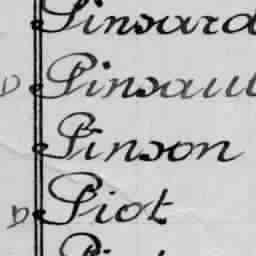 Pinsard
D Pinsaul
Pinson
D Piot